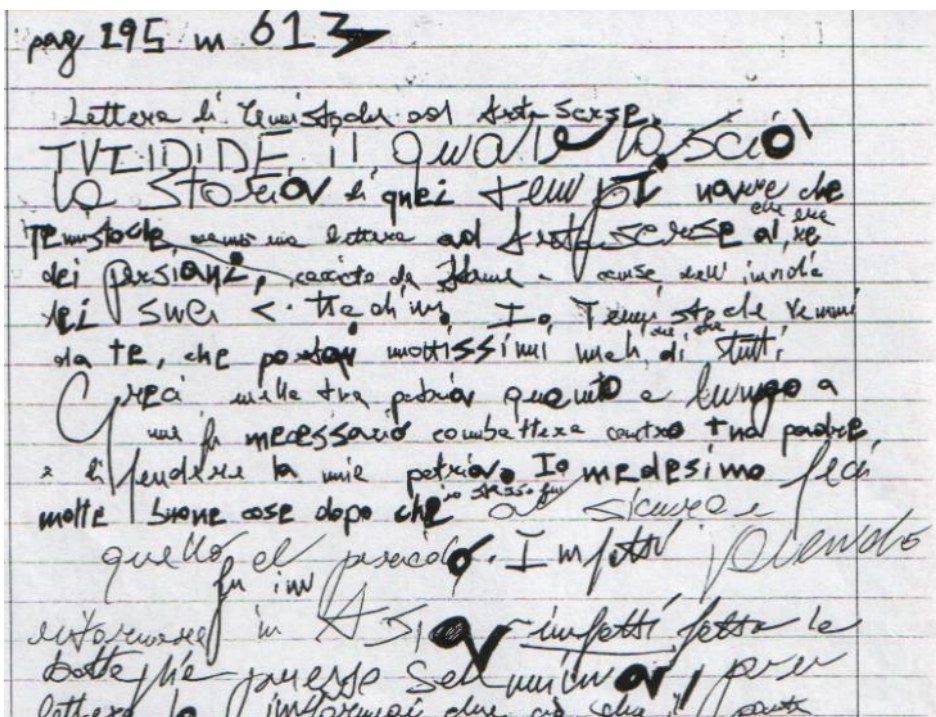 pag 295 n 613
Lettera di Temistocle ad Arta serse.
TUCIDIDE il quale lasciò
la storia di quei tempi narra che
che era
Temistocle una lettera ad Artaserse al re
dei persiani, cacciato da Atene causa dell'invidia
dei suoi cittadini. Io Temistocle venni
da te, che portai moltissimi mali di tutti i
Greci nella tua patria quanto a lungo a
me fu necessario combattere contro tuo padre,
e difendere la mia patria. Io medesimo feci
molte buone cose dopo che io stesso fui al sicuro e
quello al pericolo. Infatti
fu in
in Asia infatti fatta la
battaglia presso Salamina, per
lettera lo informai che